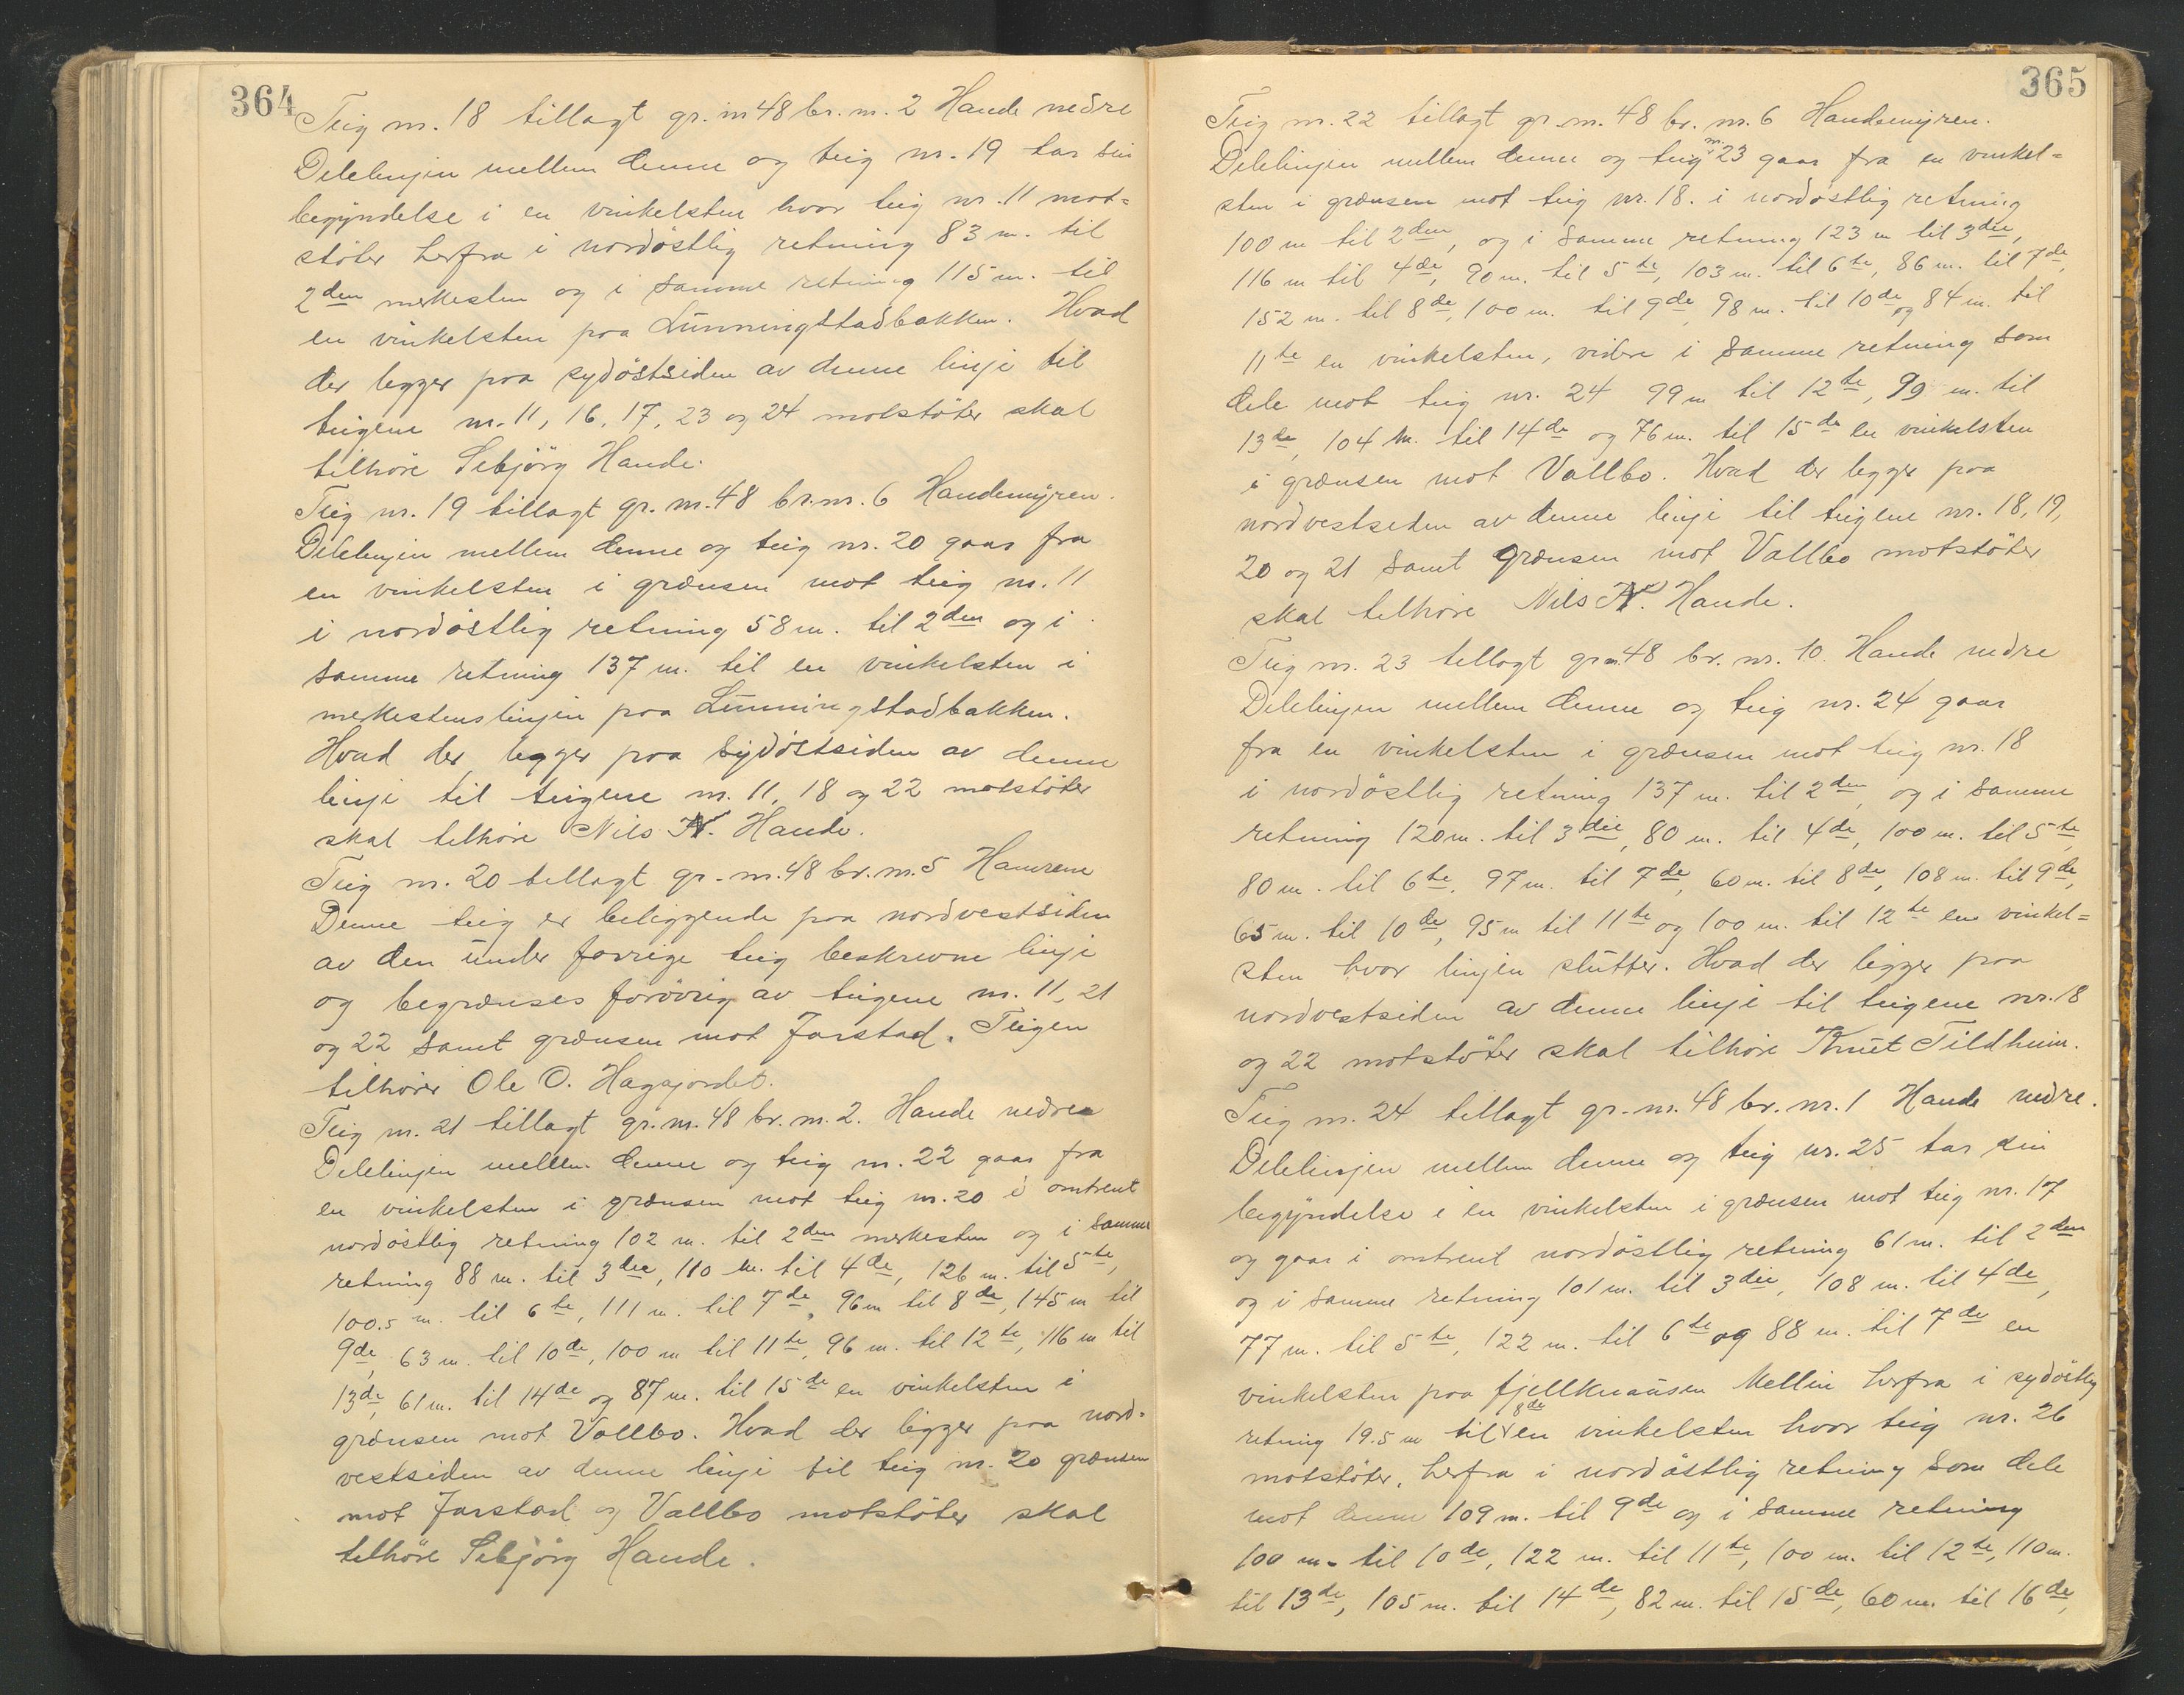 364
Teig nr. 18 tillagt gr. nr 48 br. nr. 2 Hande nedre
Delelinjen mellem denne og teig nr. 19 tar sin
begyndelse i en vinkelsten hvor teig nr. 11 mot=
støter herfra i nordøstlig retning 83 m. til
2den merkesten og i samme retning 115 m. til
en vinkelsten paa Lunningstadbakken. Hvad
der ligger paa sydøstsiden av denne linje til
teigene nr. 11, 16, 17, 23 og 24 motstøter skal
tilhøre Sebjørg Hande.
Teig nr. 19 tillagt gr. nr. 48 br. nr. 6 Handemyren.
Delelinjen mellem denne og teig nr. 20 gaar fra
en vinkelsten i grænsen mot teig nr. 11
i nordøstlig retning 58 m. til 2den og i
samme retning 137 m. til en vinkelsten i
merkestenslinjen paa Lunningstadbakken.
Hvad der ligger paa sydøstsiden av denne
linje til teigene nr. 11, 18 og 22 motstøter
skal tilhøre Nils N. Hande.
Teig nr. 20 tillagt gr. nr. 48 br. nr. 5 Hamrene
Denne teig er beliggende paa nordvestsiden
av den under forrige teig beskrevne linje
og begrænses forøvrig av teigene nr. 11, 21
og 22 samt grænsen mot Jarstad. Teigen
tilhører Ole O. Hagajordet.
Teig nr. 21 tillagt gr. nr. 48 br. nr. 2. Hande nedre
Delelinjen mellem denne og teig nr. 22 gaar fra
en vinkelsten i grænsen mot teig nr. 20 i omtrent
nordøstlig retning 102 m. til 2den merkesten og i samme
retning 88 m. til 3die, 110 m. til 4de, 126 m. til 5te,
100.5 m. til 6te, 111 m. til 7de, 96 m til 8de, 145 m til
9de, 63 m. til 10de, 100 m til 11te, 96 m. til 12te, 116 m til
13de, 61 m. til 14de og 87 m. til 15de en vinkelsten i
grænsen mot Vallbo. Hvad der ligger paa nord=
vestsiden av denne linje til teig nr. 20 grænsen
mot Jarstad og Vallbo motstøter skal
tilhøre Sebjørg Hande.
365
Teig nr. 22 tillagt gr. nr. 48 br. nr. 6 Handemyren.
Delelinjen mellem denne og teig nr. 23 gaar fra en vinkel=
sten i grænsen mot teig nr. 18. i nordøstlig retning
100 m til 2den, og i samme retning 123 m til 3die,
116 m til 4de, 90 m. til 5te, 103 m. til 6te, 86 m. til 7de,
152 m. til 8de, 100 m. til 9de, 98 m. til 10de og 84 m. til
11te en vinkelsten, videre i samme retning som
dele mot teig nr. 24 99 m til 12te, 99 m. til
13de, 104 m. til 14de og 76 m. til 15de en vinkelsten
i grænsen mot Vallbo. Hvad der ligger paa
nordvestsiden av denne linje til teigene nr. 18, 19,
20 og 21 samt grænsen mot Vallbo motstøter
skal tilhøre Nils N. Hande.
Teig nr. 23 tillagt gr nr. 48 br. nr. 10. Hande nedre
Delelinjen mellem denne og teig nr. 24 gaar
fra en vinkelsten i grænsen mot teig nr. 18
i nordøstlig retning 137 m. til 2den, og i samme
retning 120 m. til 3die, 80 m. til 4de, 100 m. til 5te,
80 m. til 6te, 97 m. til 7de, 60 m. til 8de, 108 m. til 9de,
65 m. til 10de, 95 m til 11te og 100 m. til 12te en vinkel=
sten hvor linjen slutter. Hvad der ligger paa
nordvestsiden av denne linje til teigene nr. 18
og 22 motstøter skal tilhøre Knut Tildheim.
Teig nr. 24 tillagt gr. nr. 48 br. nr. 1 Hande nedre.
Delelinjen mellem denne og teig nr. 25 tar sin
begyndelse i en vinkelsten i grænsen mot teig nr. 17
og gaar i omtrent nordøstlig retning 61 m. til 2den
og i samme retning 101 m. til 3die, 108 m. til 4de,
77 m. til 5te, 122 m. til 6te og 88 m. til 7de en
vinkelsten paa fjellknausen Mellin herfra i sydøstlig
retning 19.5 m til 8de en vinkelsten hvor teig nr. 26
motstøter, herfra i nordøstlig retning som dele
mot denne 109 m. til 9de og i samme retning
100 m. til 10de, 122 m. til 11te, 100 m. til 12te, 110 m.
til 13de, 105 m. til 14de, 82 m. til 15de, 60 m. til 16de,